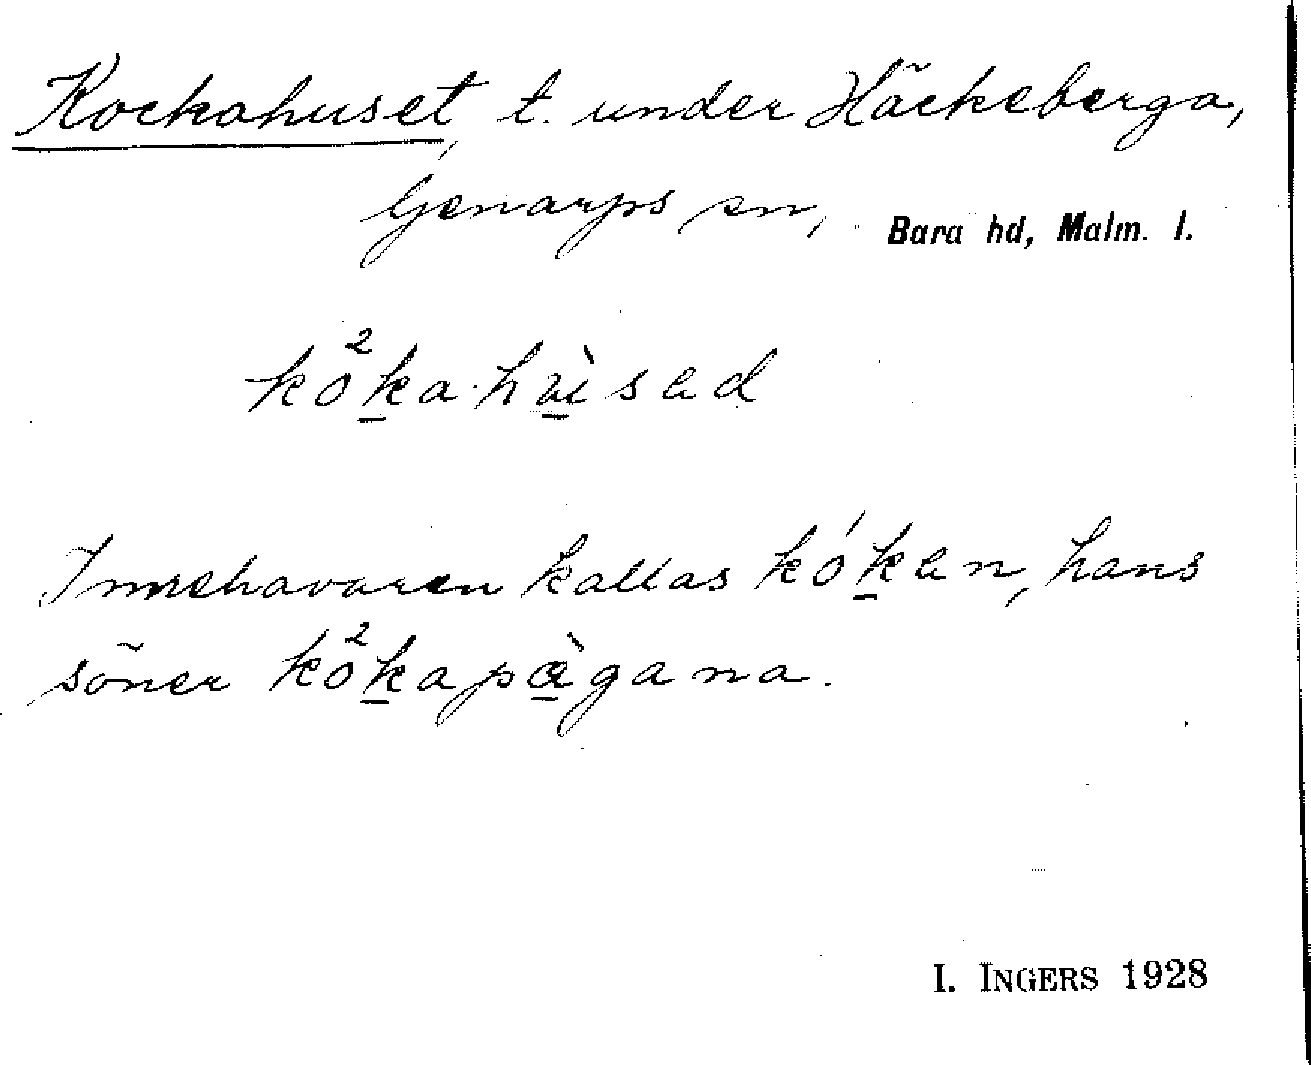 Kockahuset, t. under Häckeberga,
Genarps sn, Bara hd, Malm. l.
kö̀²ka·hùised
Innehavaren kallas kóken, hans
söner kö²kapàgana.
I. INGERS 1928